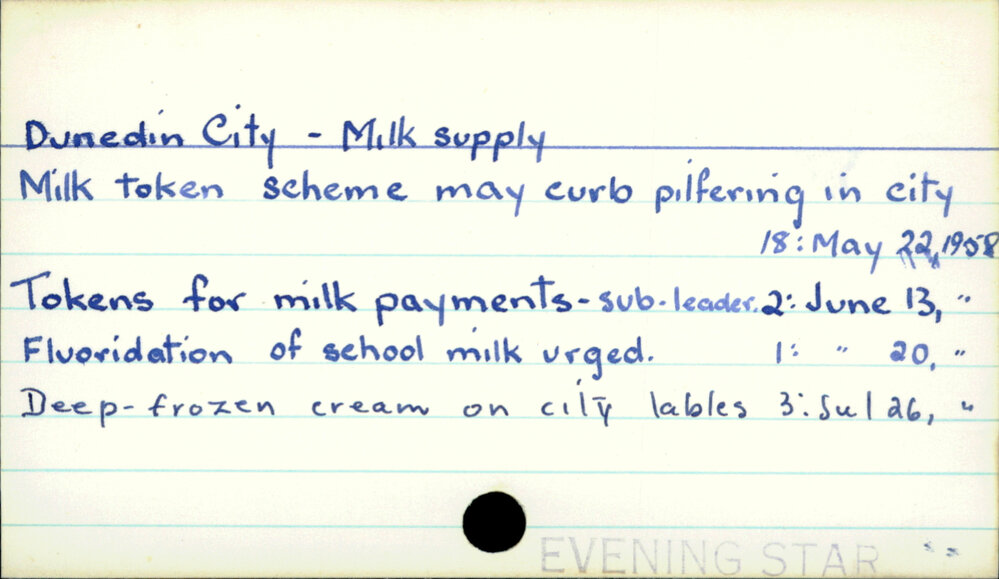 Dunedin City - Milk supply
Milk token scheme may curb pilfering in city
18: May 22, 1958
Tokens for milk payments - sub-leader. 2: June 13, "
Fluoridation of school milk urged. 1: " 20, "
Deep-frozen cream on city tables 3: Jul 26, "
EVENING STAR